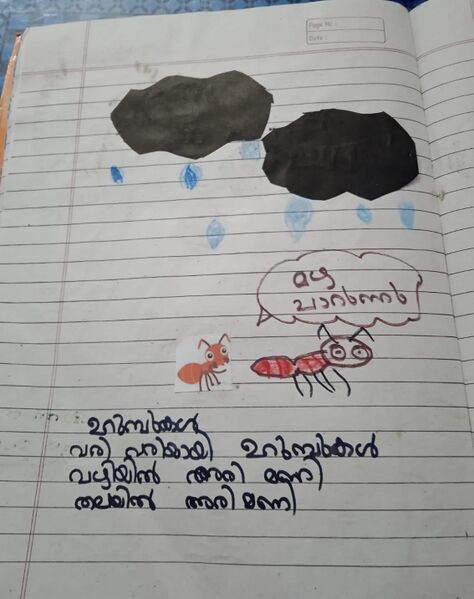 Page No :
Date :
മഴ
ഉറുമ്പുകൾ
വരി വരിയായി ഉറുമ്പുകൾ
വഴിയിൽ അരി മണി
തലയിൽ അരി മണി